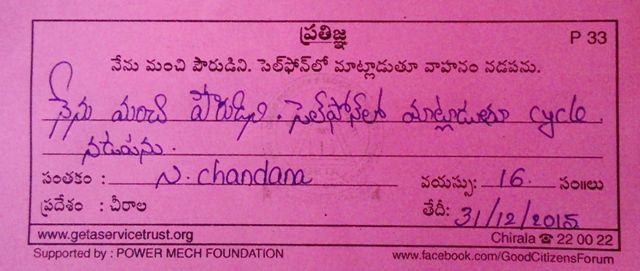 ప్రతిజ్ఞ P 33
నేను మంచి పౌరుడిని. సెల్‌ఫోన్‌లో మాట్లాడుతూ వాహనం నడపను.
నేను మంచి పౌరుడిని. సెల్‌ఫోన్‌లో మాట్లాడుతూ cycle
నడపను.
సంతకం : N. chandana వయస్సు: 16 సం॥లు
ప్రదేశం : చీరాల తేదీ: 31/12/2015
www.getaservicetrust.org Chirala ☎ 22 00 22
Supported by : POWER MECH FOUNDATION www.facebook.com/GoodCitizensForum